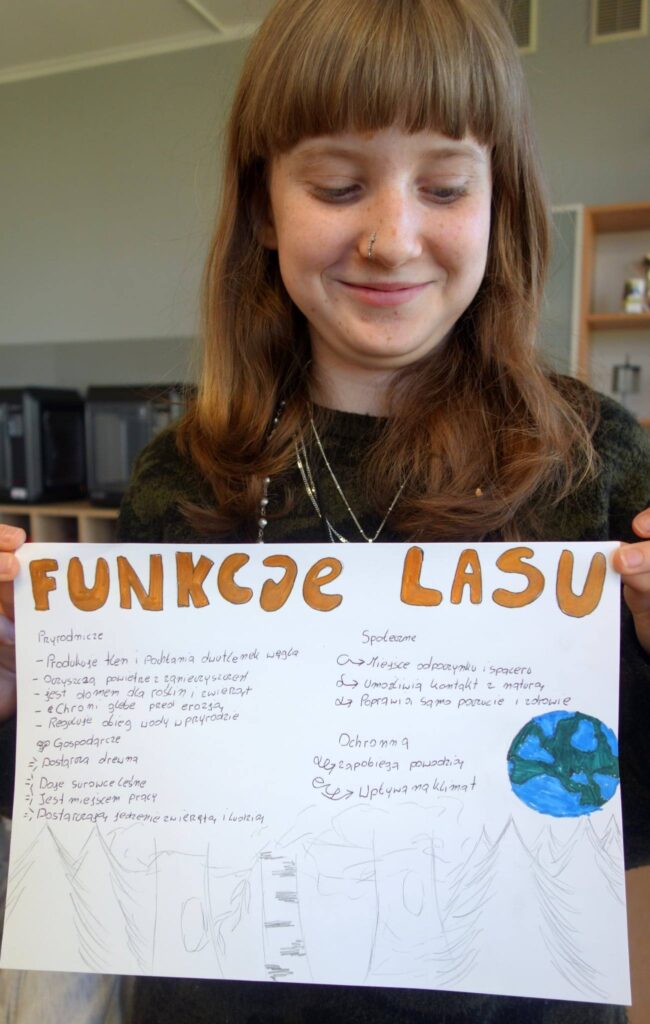 FUNKCJE LASU
Przyrodnicze
- Produkuje tlen i pochłania dwutlenek węgla
- Oczyszcza powietrze z zanieczyszczeń
- jest domem dla roślin i zwierząt
- Chroni glebe przed erozją
- Reguluje obieg wody w przyrodzie
Gospodarcze
Dostarcza drewna
Daje surowce leśne
Jest miejscem pracy
Dostarczają jedzenie zwierzątą i ludzią
Społeczne
Miejsce odpoczynku i spacero
Umożliwia kontakt z naturą
Poprawia samo poczucie i zdrowie
Ochronna
zapobiega powodzią
Wpływa na klimat